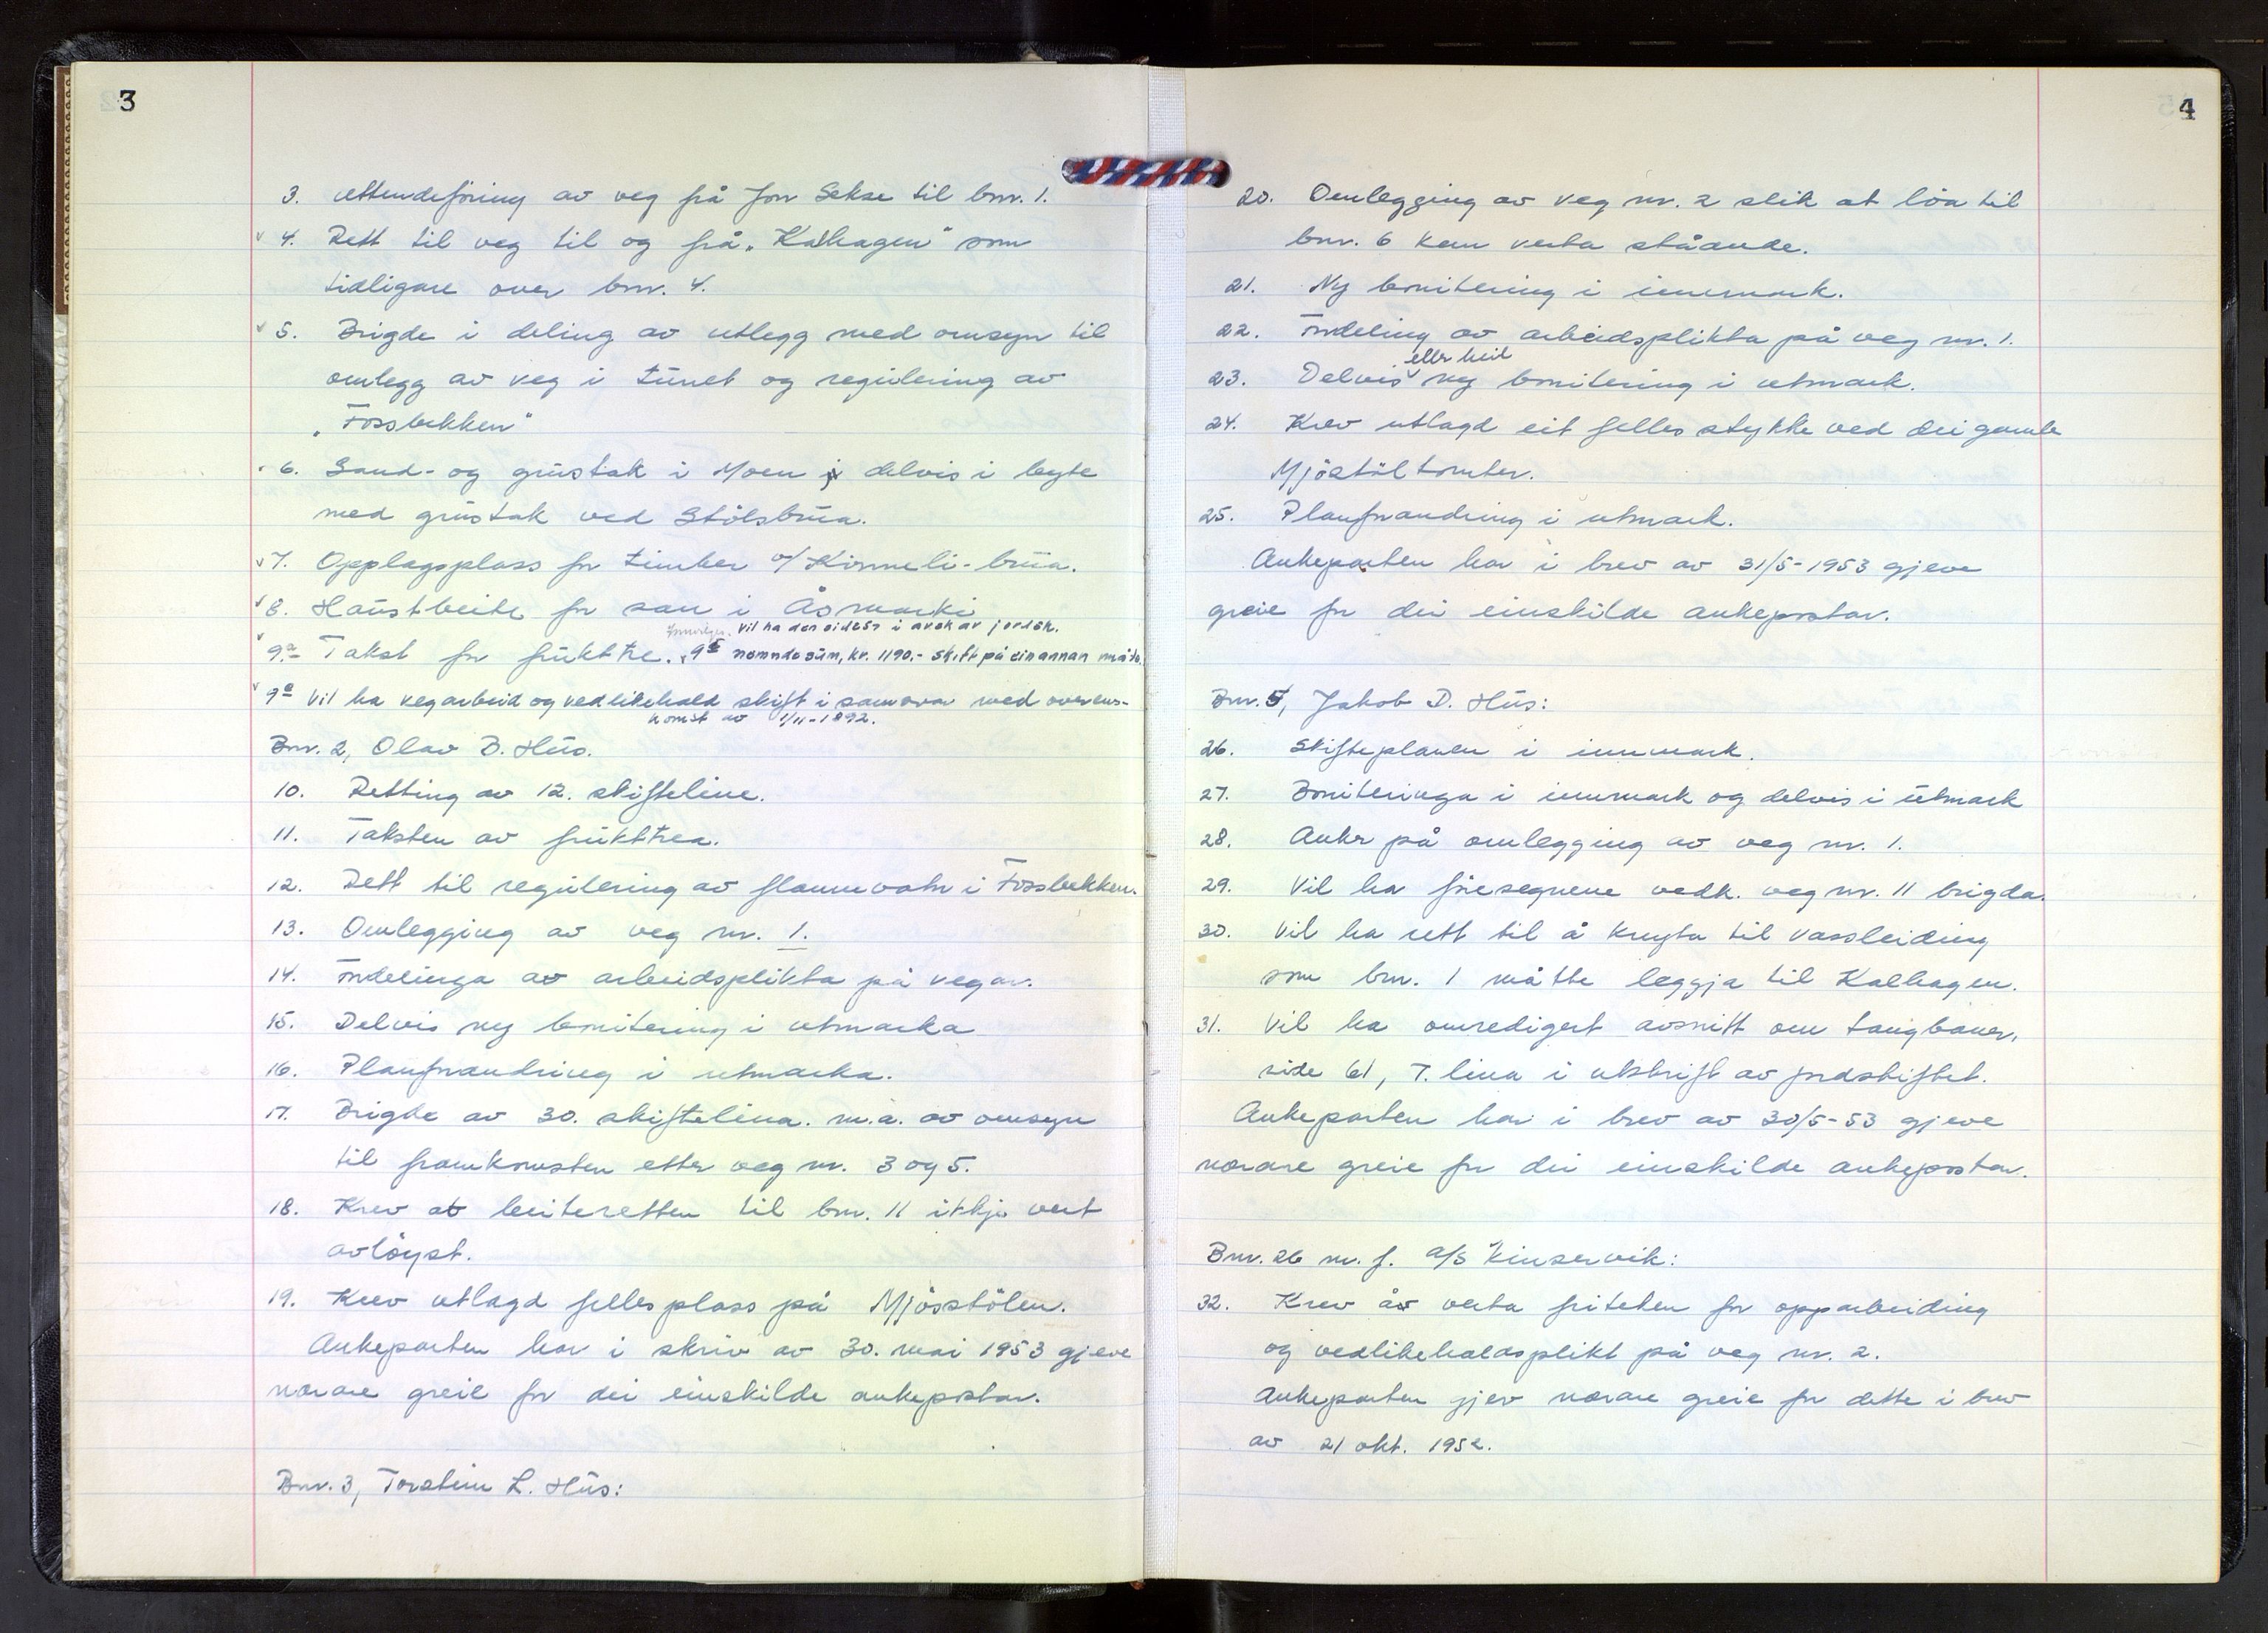 3
3. Attendeføring av veg frå Jon Sekse til bnr. 1.
4. Rett til veg til og frå „Kalhagen" som
tidligare over bnr. 4.
5. Brigde i deling av utlegg med omsyn til
omlegg av veg i tunet og regulering av
„Fossbekken"
6. Sand- og grustak i Moen delvis i byte
med grustak ved Stölsbrua.
7. Opplagsplass for timber v/ Kinneli-brua.
8. Haustbeite for sau i Åsmarki
Vil ha den sidste i avsk av jordsk.
9a Takst for frukttre. 9b nemnde sum, kr. 1190.- skift på ein annan måte.
9c Vil ha vegarbeid og vedlikehald skift i samsvar med overens-
komst av 1/11-1892.
Bnr. 2, Olav B. Hus.
10. Retting av 12. skifteline.
11. Taksten av frukttrea.
12. Rett til regulering av flaumvatn i Fossbekken.
13. Omlegging av veg nr. 1.
14. Fordelinga av arbeidsplikta på vegar.
15. Delvis ny bonitering i utmarka
16. Planforandring i utmarka.
17. Brigde av 30. skiftelina. m.a. av omsyn
til framkomsten etter veg nr. 3 og 5.
18. Krev at beiteretten til bnr. 11 ikkje vert
avlöyst.
19. Krev utlagd fellesplass på Mjösstölen.
Ankeparten har i skriv av 30. mai 1953 gjeve
nærare greie for dei einskilde ankepostar.
Bnr. 3, Torstein L. Hus:
4
20. Omlegging av veg nr. 2 slik at löa til
bnr. 6 kan verta ståande.
21. Ny bonitering i innmark.
22. Fordeling av arbeidsplikta på veg nr. 1.
eller heil
23. Delvis ny bonitering i utmark.
24. Krev utlagd eit felles stykke ved dei gamle
Mjöstöltomter.
25. Planforandring i utmark.
Ankeparten har i brev av 31/5-1953 gjeve
greie for dei einskilde ankepostar.
Bnr. 5, Jakob D. Hus:
26. Skifteplanen i innmark.
27. Boniteringa i innmark og delvis i utmark
28. Ankr på omlegging av veg nr. 1.
29. Vil ha föresegnene vedk. veg nr. 11 brigda.
30. Vil ha rett til å knyta til vassleiding
som bnr. 1 måtte leggja til Kalhagen.
31. Vil ha omredigert avsnitt om taugbaner,
side 61, 7. lina i utskrift av jordskiftet.
Ankeparten har i brev av 30/5-53 gjeve
nærare greie for dei einskilde ankepostar.
Bnr. 26 m. f. A/S Kinservik:
32. Krev å verta friteken for opparbeiding
og vedlikehaldsplikt på veg nr. 2.
Ankeparten gjev nærare greie for dette i brev
av 21 okt. 1952.